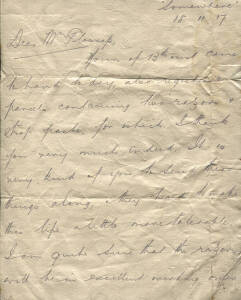 "Somewhere"
18 11 17
Dear Mr
Yours of 13th inst came
to hand to day, also
parcel containing two razors &
strop paste for which I thank
you very much indeed. It is
very kind of you to send these
things along, they tend to make
this life a little more tolerable
I am quite sure that the razors
will be in excellent